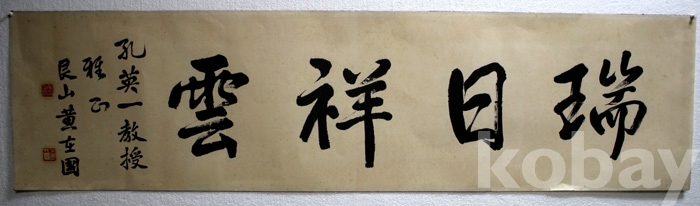 瑞日祥雲
孔英一教授
雅正
艮山黃在國
kobay